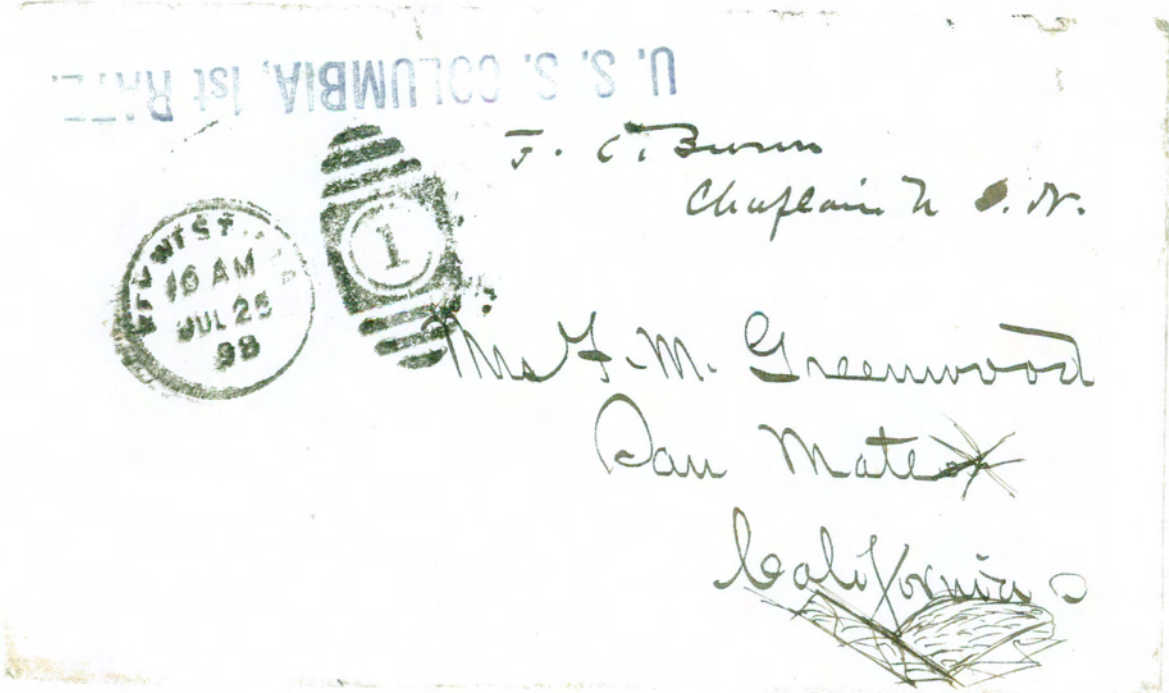 U. S. S. COLUMBIA, 1st RATE.
F. C. Brown
Chaplain U. S. N.
KEY WEST, FLA.
10 AM
JUL 25
98
1
Mrs F. M. Greenwood
San Mateo
California